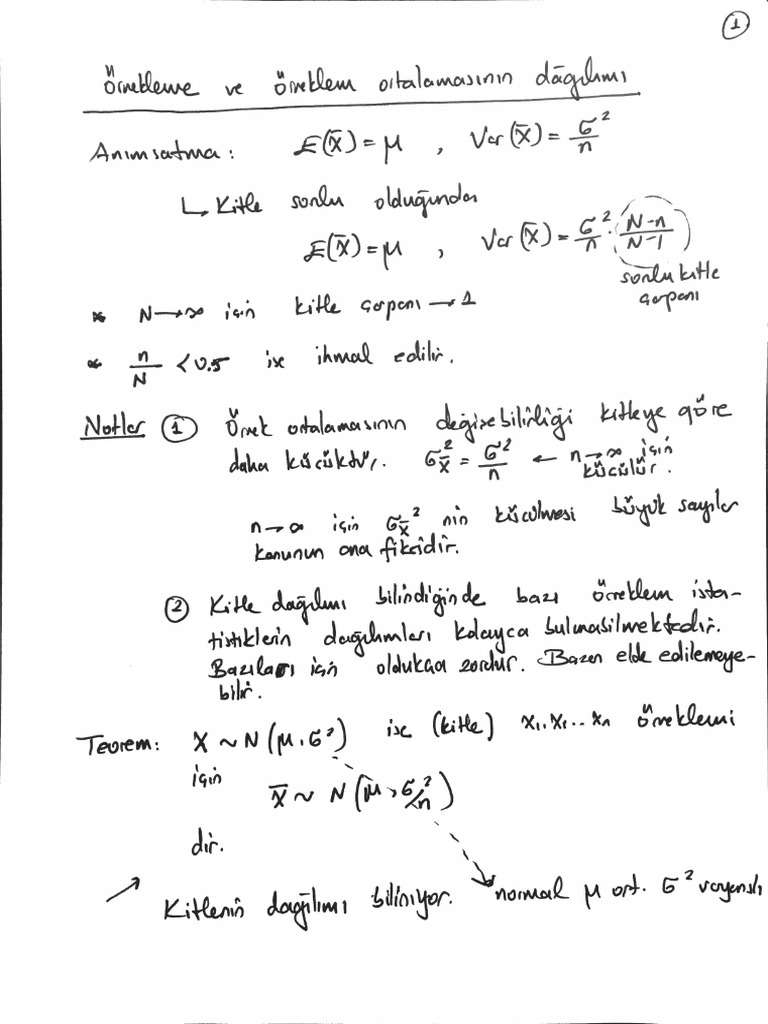 1
Örnekleme ve Örneklem ortalamasının dağılımı
Anımsatma: E(X̄) = μ , Var(X̄) = σ²/n
↳ Kitle sonlu olduğundan
E(X̄) = μ , Var(X̄) = σ²/n · (N-n)/(N-1)
sonlu kitle
çarpanı
* N→∞ için kitle çarpanı → 1
* n/N < 0.5 ise ihmal edilir.
Notlar ① Örnek ortalamasının değişebilirliği kitleye göre
daha küçüktür. σ_X̄² = σ²/n ← n→∞ için
küçülür.
n→∞ için σ_X̄² nin küçülmesi büyük sayılar
kanunun ana fikridir.
② Kitle dağılımı bilindiğinde bazı örneklem ista-
tistiklerin dağılımları kolayca bulunabilmektedir.
Bazıları için oldukça zordur. Bazen elde edilemeye-
bilir.
Teorem: X ~ N(μ, σ²) ise (kitle) x₁, x₂ ... xₙ örneklemi
için
X̄ ~ N(μ, σ²/n)
dır.
Kitlenin dağılımı biliniyor. normal μ ort. σ² varyanslı